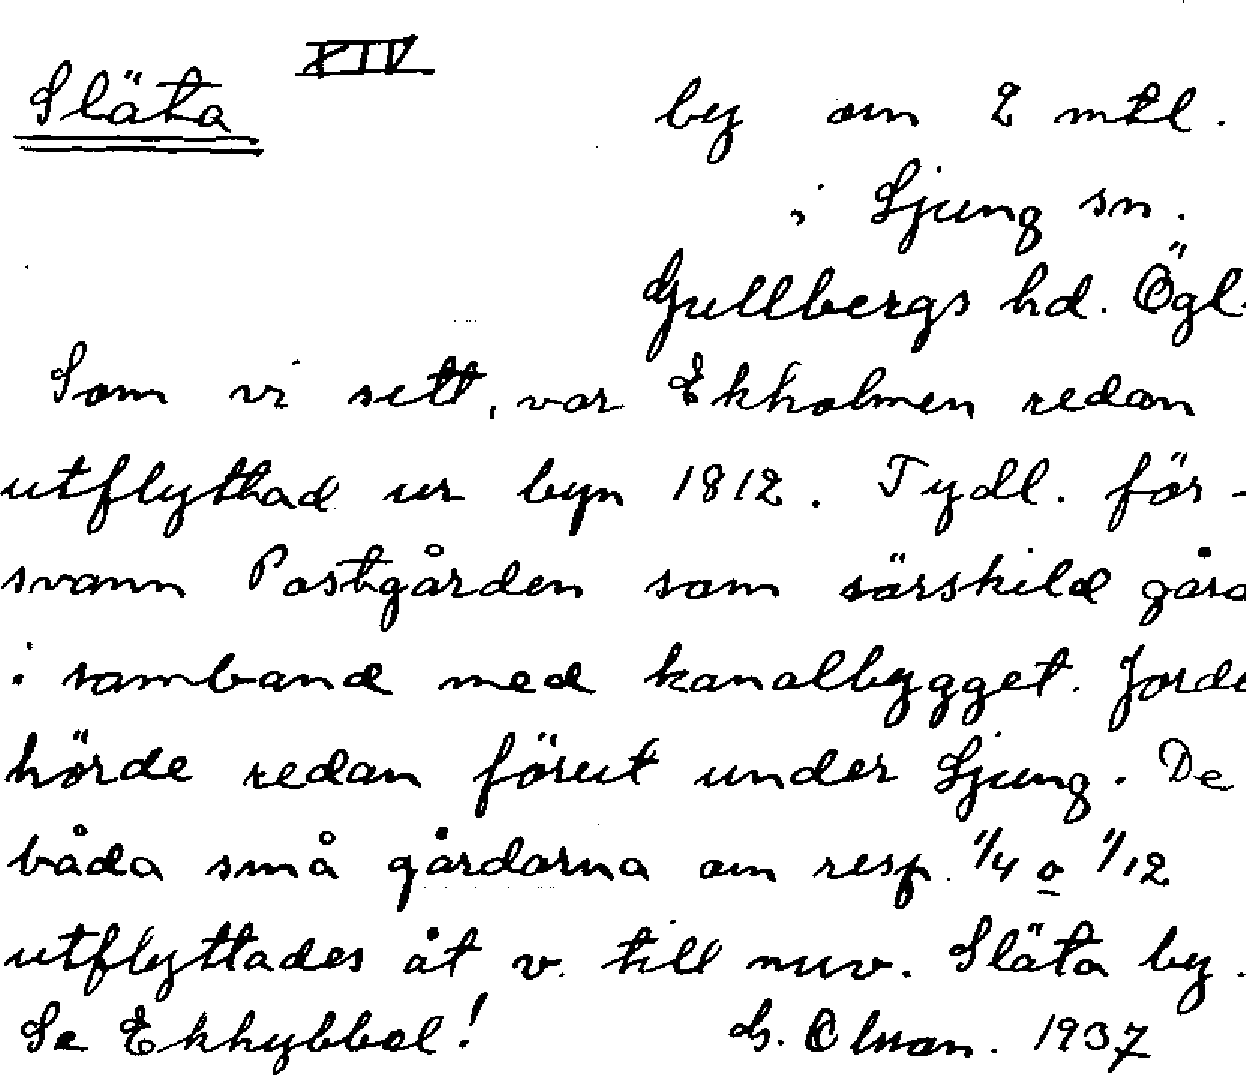 XIV
Släta by om 2 mtl.
i Ljung sn.
Gullbergs hd. Ögl.
Som vi sett, var Ekholmen redan
utflyttad ur byn 1812. Tydl. för-
svann Postgården som särskild gård
i samband med kanalbygget. Jorde
hörde redan förut under Ljung. De
båda små gårdarna om resp. 1/4 o 1/12
utflyttades åt v. till nuv. Släta by.
Se Ekkybbel! 1937